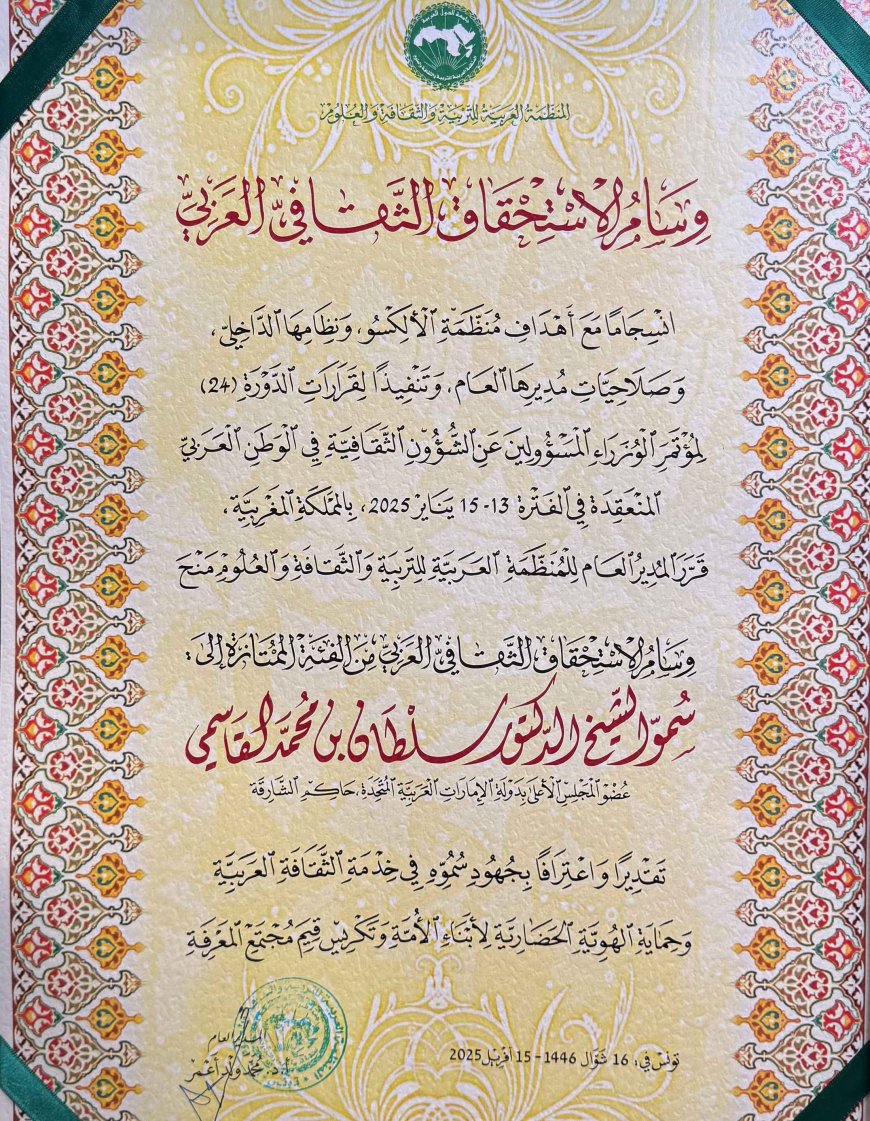 جامعة الدول العربية
المنظمة العربية للتربية والثقافة والعلوم
وِسَامُ الْاسْتِحْقَاقِ الثَّقَافِيِّ الْعَرَبِيِّ
انْسِجَامًا مَعَ أَهْدَافِ مُنَظَّمَةِ الْأَلِكْسُو، وَنِظَامِهَا الدَّاخِلِيِّ،
وَصَلَاحِيَّاتِ مُدِيرِهَا الْعَام، وَتَنْفِيذًا لِقَرَارَاتِ الدَّوْرَةِ (24)
لِمُؤْتَمَرِ الْوُزَرَاءِ الْمَسْؤُولِينَ عَنِ الشُّؤُونِ الثَّقَافِيَّةِ فِي الْوَطَنِ الْعَرَبِيِّ
الْمُنْعَقِدَةِ فِي الْفَتْرَة 13-15 يَنَايِرْ 2025، بِالْمَمْلَكَةِ الْمَغْرِبِيَّةِ،
قَرَّرَ الْمُدِيرُ الْعَام لِلْمُنَظَّمَةِ الْعَرَبِيَّةِ لِلتَّرْبِيَةِ وَالثَّقَافَةِ وَالْعُلُومْ مَنْحَ
وِسَامُ الْاسْتِحْقَاقِ الثَّقَافِيِّ الْعَرَبِيِّ مِنَ الْفِئَةِ الْمُمْتَازَةِ إِلَى:
سُمُوّ الشَّيْخِ الدّكتور سُلْطَان بن مُحَمَّد القَاسِمي
عُضْوِ الْمَجْلِسِ الْأَعْلَى بِدَوْلَةِ الْإِمَارَاتِ الْعَرَبِيَّةِ الْمُتَّحِدَةِ، حَاكِمِ الشَّارِقَة
تَقْدِيرًا وَاعْتِرَافًا بِجُهُودِ سُمُوِّهِ فِي خِدْمَةِ الثَّقَافَةِ الْعَرَبِيَّةِ
وَحِمَايَةِ الْهُوِيَّةِ الْحَضَارِيَّةِ لِأَبْنَاءِ الْأُمَّةِ وَتَكْرِيسِ قِيَمِ مُجْتَمَعِ الْمَعْرِفَةِ
تونس في: 16 شَوَّال 1446 - 15 أفريل 2025
المدير العام
أ. د. محمد ولد أعمر